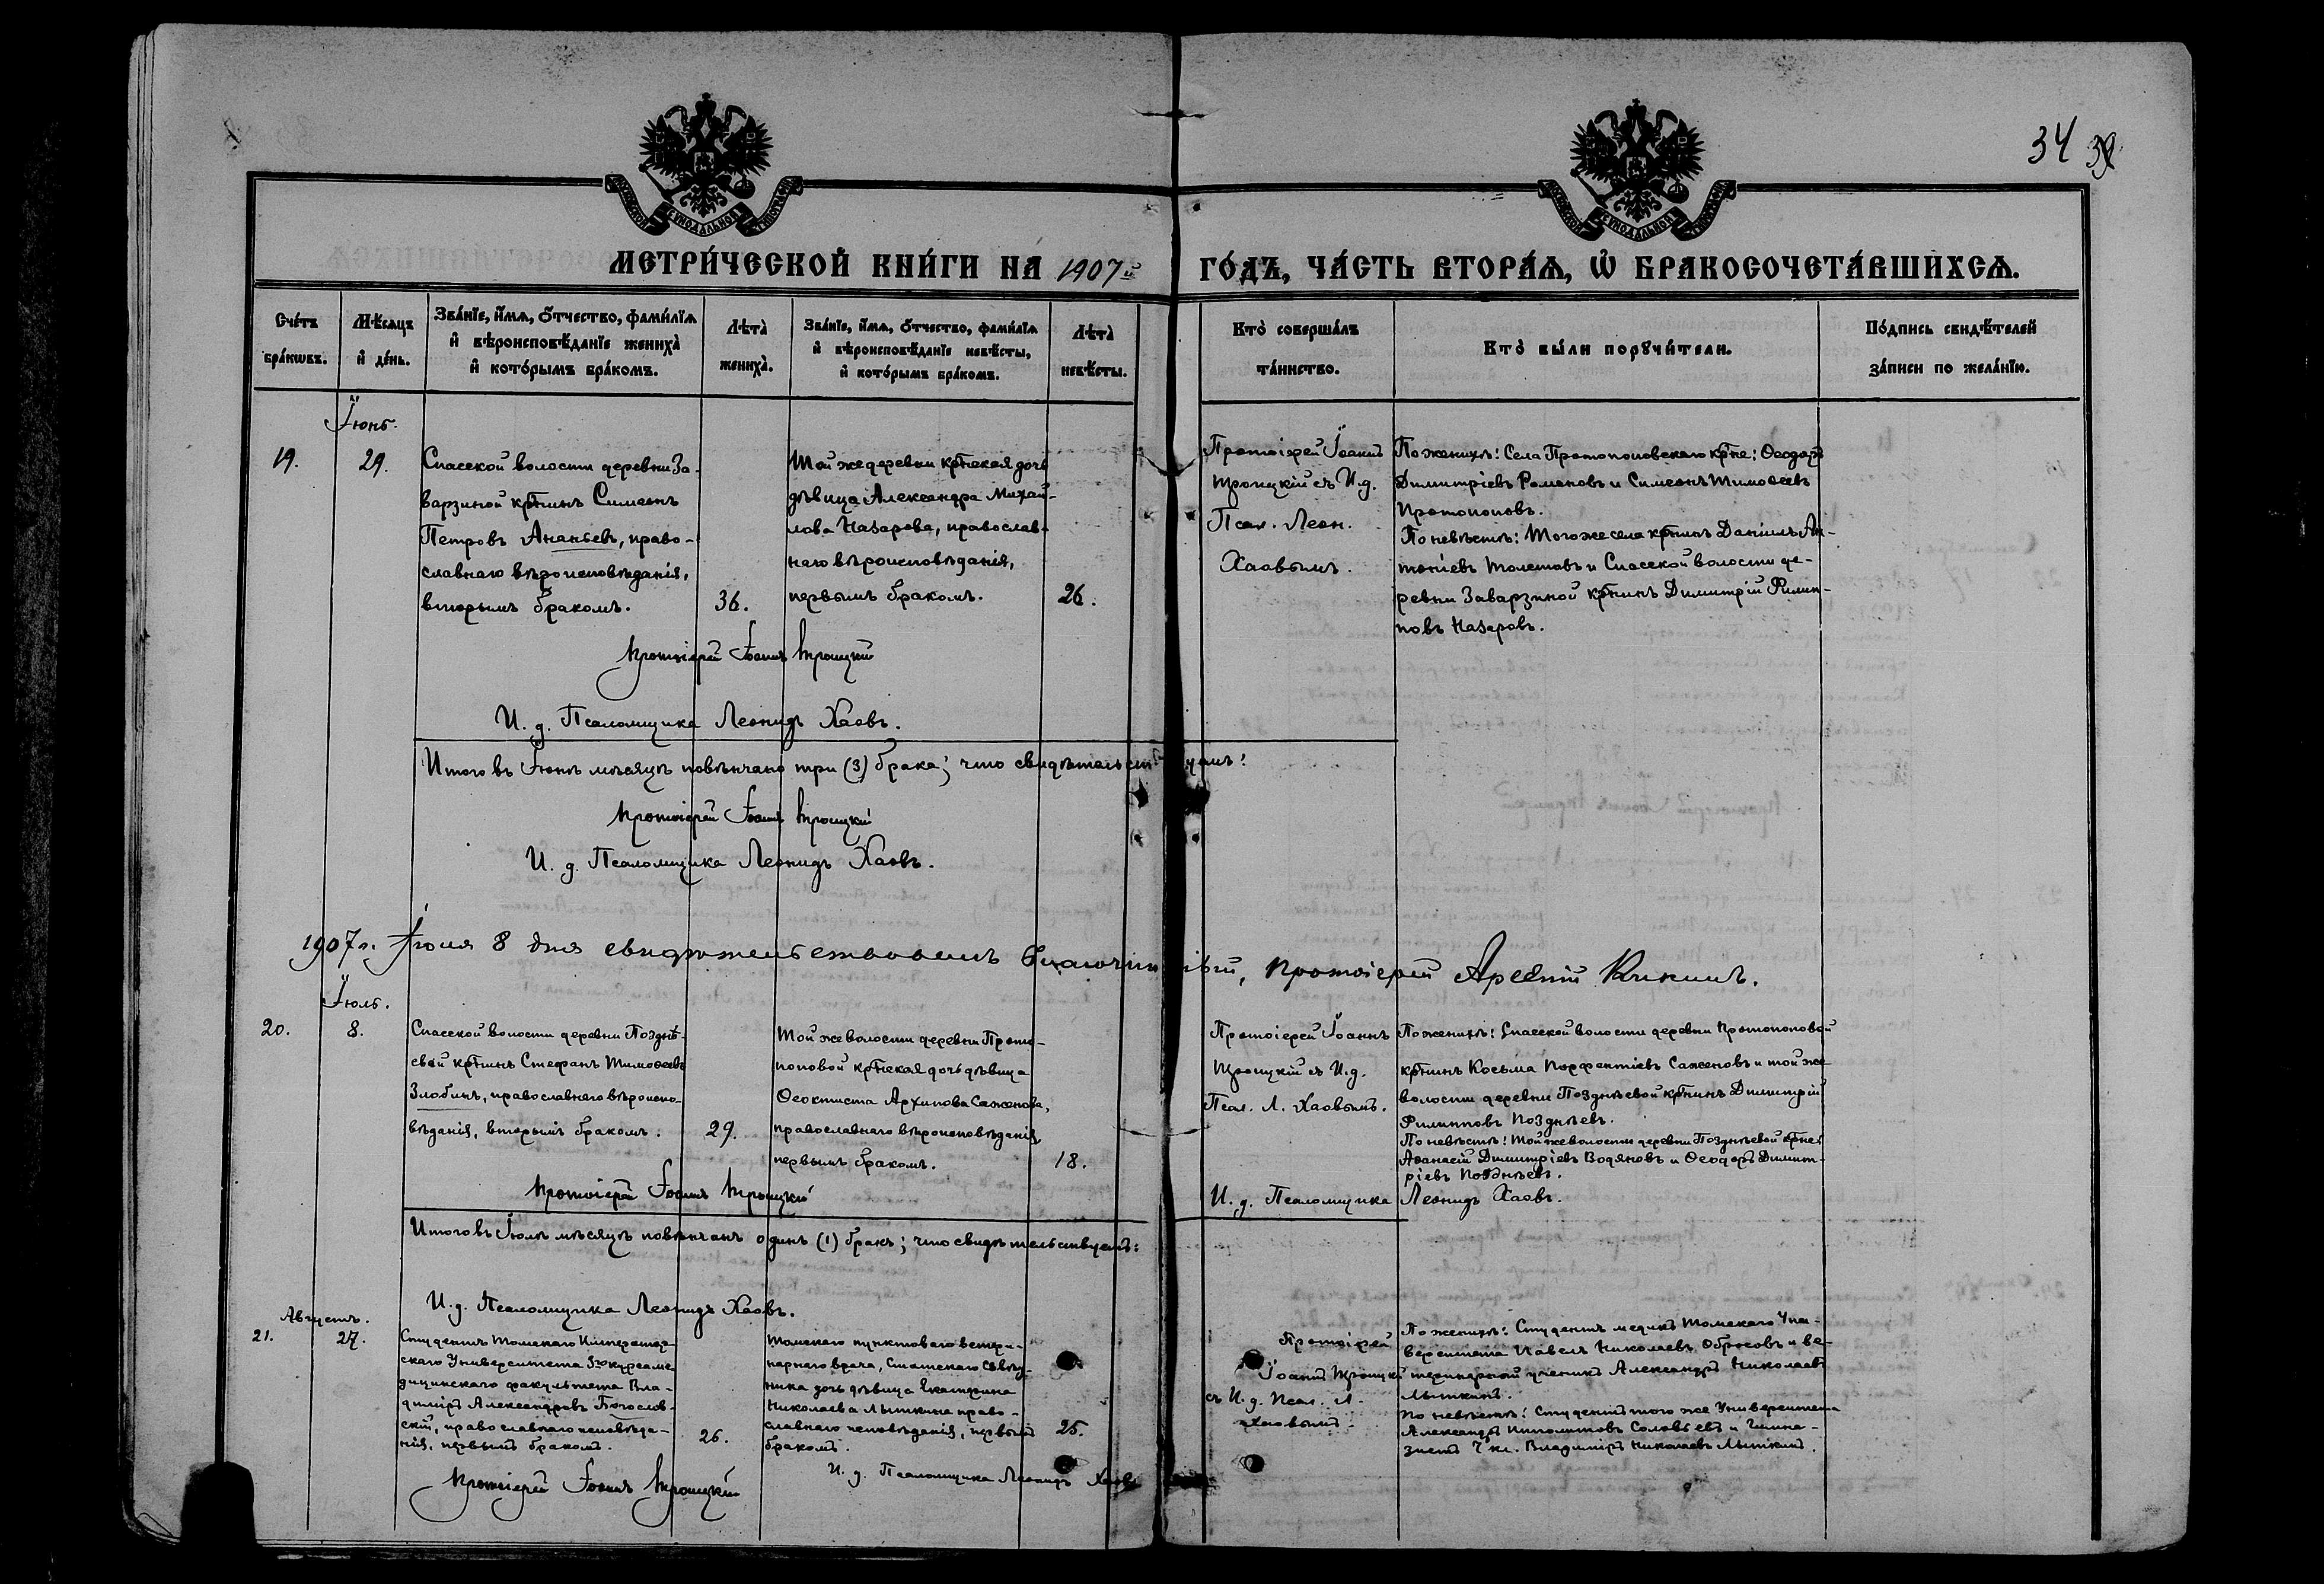 34 39
МЕТРИ́ЧЕСКОЙ КНИ́ГИ НА 1907й ГО́ДЪ, ЧА́СТЬ ВТОРА́Ѧ, Ѡ БРАКОСОЧЕТА́ВШИХСѦ.
Сче́тъ бра́кѡвъ.
Мѣ́сѧцъ и де́нь.
Зва́нїе, и́мѧ, ѻ́тчество, фами́лїѧ и вѣроисповѣ́данїе жениха̀ и кото́рымъ бра́комъ.
Лѣта̀ жениха̀.
Зва́нїе, и́мѧ, ѻ́тчество, фами́лїѧ и вѣроисповѣ́данїе невѣ́сты, и кото́рымъ бра́комъ.
Лѣта̀ невѣ́сты.
Кто̀ соверша́лъ та́инство.
Кто̀ бы́ли порꙋчи́тели.
По́дпись свидѣ́телей за́писи по жела́нїю.
Іюнь.
19.
29.
Спасской волости деревни За-
варзиной кр̃нинъ Симеонъ
Петровъ Ананьевъ, право-
славнаго вѣроисповѣданія,
вторымъ бракомъ.
36.
Той же деревни кр̃нская дочь
дѣвица Александра Михай-
лова Назарова, православ-
наго вѣроисповѣданія,
первымъ бракомъ.
26.
Протоіерей Іоаннъ
Троицкій съ И.д.
Псал. Леон.
Хаовымъ.
По женихѣ: Села Протопоповскаго кр̃не: Ѳеодоръ
Димитріевъ Романовъ и Симеонъ Тимоѳеевъ
Протопоповъ.
По невѣстѣ: Того же села кр̃нинъ Даніилъ Ан-
тоніевъ Толстовъ и Спасской волости де-
ревни Заварзиной кр̃нинъ Димитрій Филип-
повъ Назаровъ.
Протоіерей Іоаннъ Троицкій
И. д. Псаломщика Леонидъ Хаовъ.
Итого въ Іюнѣ мѣсяцѣ повѣнчано три (3) брака; что свидѣтельствуемъ:
Протоіерей Іоаннъ Троицкій
И. д. Псаломщика Леонидъ Хаовъ.
1907 г. Іюля 8 дня свидѣтельствовалъ Благочинный, Протоіерей Арсеній Кикинъ.
Іюль.
20.
8.
Спасской волости деревни Позднѣ-
евой кр̃нинъ Стефанъ Тимоѳеевъ
Злобинъ, православнаго вѣроиспо-
вѣданія, вторымъ бракомъ.
29.
Той же волости деревни Прото-
поповой кр̃нская дочь дѣвица
Ѳеоктиста Архипова Саженова,
православнаго вѣроисповѣданія,
первымъ бракомъ.
18.
Протоіерей Іоаннъ
Троицкій съ И.д.
Псал. Л. Хаовымъ.
По женихѣ: Спасской волости деревни Протопоповой
кр̃нинъ Косьма Парфентіевъ Саженовъ и той же
волости деревни Позднѣевой кр̃нинъ Димитрій
Филипповъ Позднѣевъ.
По невѣстѣ: Той же волости деревни Позднѣевой кр̃не
Аѳанасій Димитріевъ Водяновъ и Ѳеодоръ Димит-
ріевъ Позднѣевъ.
Протоіерей Іоаннъ Троицкій
И. д. Псаломщика Леонидъ Хаовъ.
Итого въ Іюлѣ мѣсяцѣ повѣнчанъ одинъ (1) бракъ; что свидѣтельствуемъ:
И. д. Псаломщика Леонидъ Хаовъ.
Августъ.
21.
27.
Студентъ Томскаго Император-
скаго Университета 5го курса ме-
дицинскаго факультета Вла-
диміръ Александровъ Богослов-
скій, православнаго исповѣда-
нія, первымъ бракомъ.
26.
Томскаго пунктоваго ветери-
нарнаго врача, Статскаго Совѣт-
ника дочь дѣвица Екатерина
Николаева Лыткина право-
славнаго исповѣданія, первымъ
бракомъ.
25.
Протоіерей
Іоаннъ Троицкій
съ И.д. Псал. Л.
Хаовымъ.
По женихѣ: Студентъ медикъ Томскаго Уни-
верситета Павелъ Николаевъ Обросовъ и ве-
теринарный ученикъ Александръ Николаевъ
Лыткинъ.
По невѣстѣ: Студентъ того же Университета
Александръ Ипполитовъ Соловьевъ и Гимна-
зистъ 7 кл. Владиміръ Николаевъ Лыткинъ.
Протоіерей Іоаннъ Троицкій
И. д. Псаломщика Леонидъ Хаовъ